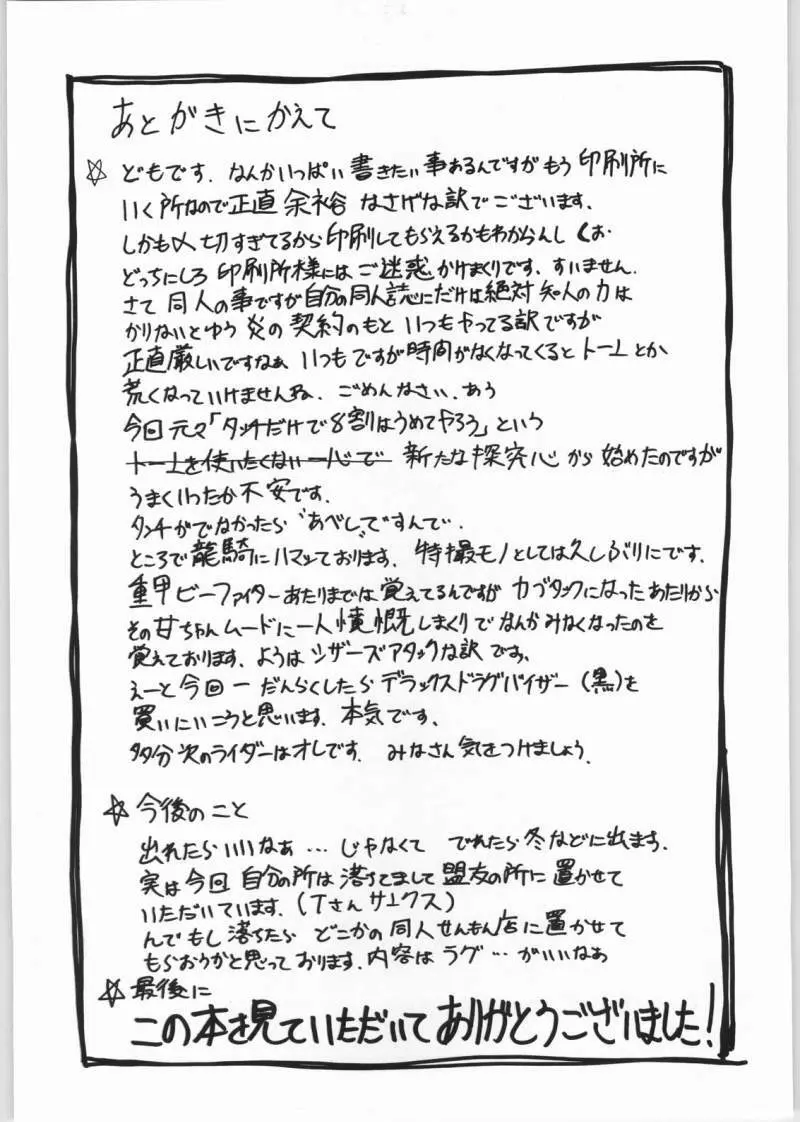 あとがきにかえて
☆ どもです. なんかいっぱい書きたい事あるんですがもう印刷所に
いく所なので正直余裕なさげな訳でございます.
しかも〆切すぎてるから印刷してもらえるかもわからんし くお.
どっちにしろ印刷所様にはご迷惑かけまくりです. すいません.
さて同人の事ですが自分の同人誌にだけは絶対知人の力は
かりないとゆう炎の契約のもといつもやってる訳ですが
正直厳しいですなぁ いつもですが時間がなくなってくるとトーンとか
荒くなっていけませんね. ごめんなさい. あう
今回元々「タッチだけで8割はうめてやろう」という
トーンを使いたくない一心で 新たな探究心から始めたのですが
うまくいったか不安です.
タッチがでなかったら"あべし"ですんで.
ところで龍騎にハマッております. 特撮モノとしては久しぶりにです.
重甲ビーファイターあたりまでは覚えてるんですがカブタックになったあたりから
その甘ちゃんムードに一人憤慨しまくりでなんかみなくなったのを
覚えております. ようはシザーズアタックな訳ですよ.
えーと今回一だんらくしたらデラックスドラグバイザー(黒)を
買いにいこうと思います. 本気です.
多分次のライダーはオレです. みなさん気をつけましょう.
☆ 今後のこと
出れたらいいなぁ … じゃなくて でれたら冬などに出ます.
実は今回自分の所は落ちてまして盟友の所に置かせて
いただいています. (Tさんサークス)
んでもし落ちたらどこかの同人せんもん店に置かせて
もらおうかと思っております. 内容はラグ … がいいなぁ
☆ 最後に
この本を見ていただいてありがとうございました!